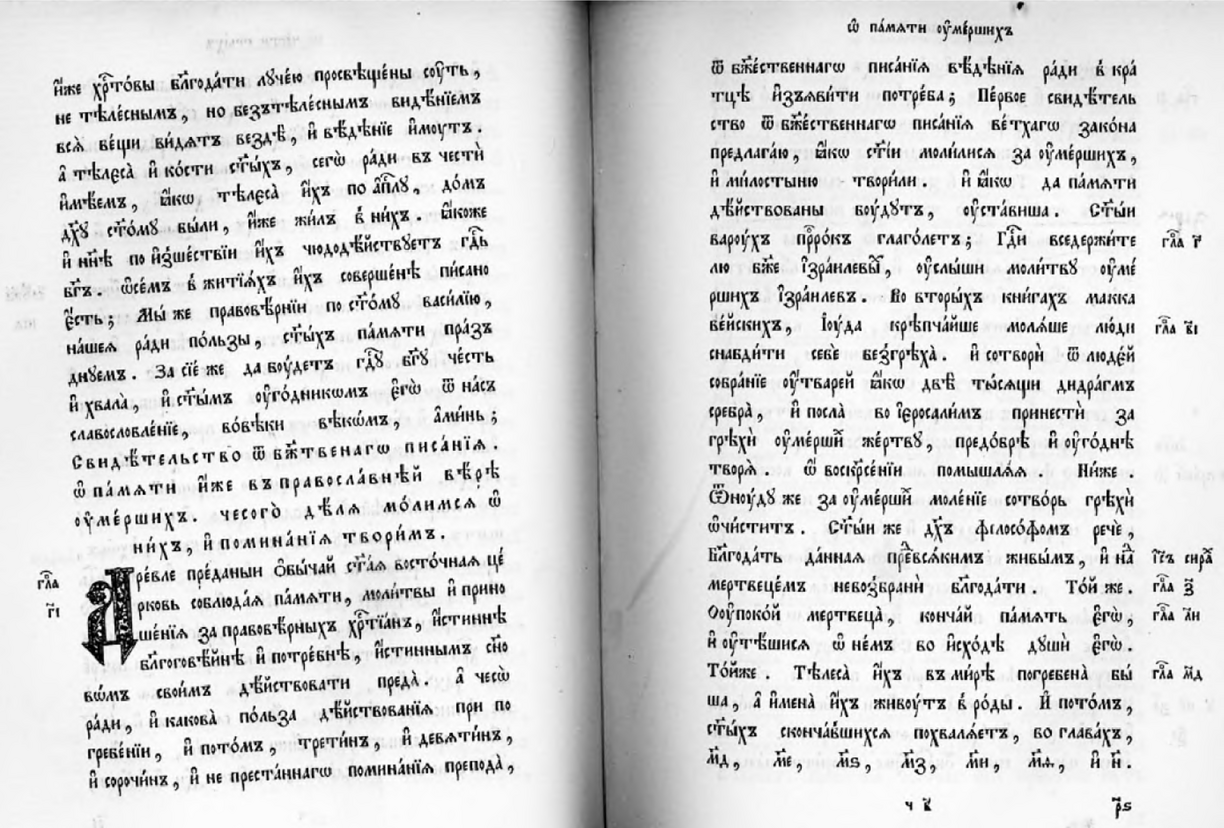 и҆́же хрⷭ҇то́вы бл҃года́ти лꙋче́ю просвѣще́ны сꙋ́ть,
не тѣле́снымъ, но безътѣле́снымъ видѣ́нїемъ
всѧ̀ ве́щи ви́дѧтъ вездѣ̀, и҆ вѣ́дѣнїе и҆́мꙋтъ.
а҆ тѣлеса̀ и҆ ко́сти ст҃ы́хъ, сегѡ̀ ра́ди въ че́сти
и҆мѣ́емъ, ꙗ҆́кѡ тѣлеса̀ и҆́хъ по а҆пⷭ҇лꙋ, до́мъ
дх҃ꙋ ст҃о́мꙋ бы́ли, и҆́же жи́лъ в̾ ни́хъ. ꙗ҆́коже
и҆ нн҃ѣ по и҆зше́ствїи и҆́хъ чюдодѣ́йствꙋетъ гдⷭ҇ь
бг҃ъ. ѡ҆ се́мъ в̾ житїѧ́хъ и҆́хъ соверше́нѣ пи́сано
є҆́сть; Мы́ же правовѣ́рнїи по ст҃о́мꙋ васи́лїю,
на́шеѧ ра́ди по́льзы, ст҃ы́хъ па́мѧти пра́з
днꙋемъ. За сїе́ же да бꙋ́детъ гдⷭ҇ꙋ бг҃ꙋ че́сть
и҆ хвала̀, и҆ ст҃ы́мъ ᲂу҆го́дникѡмъ є҆гѡ̀ ѿ на́съ
славосло́вленїе, во́вѣки вѣ́кѡмъ, а҆ми́нь;
Свидѣ́тельство ѿ бжⷭ҇твенагѡ писа́нїѧ.
ѡ҆ па́мѧти и҆́же въ правосла́внѣй вѣ́рѣ
ᲂу҆ме́ршихъ. чесого̀ дѣ́лѧ мо́лимсѧ ѡ҆
ни́хъ, и҆ помина́нїѧ твори́мъ.
гла҃
гі҃
Дре́вле пре́даныи ѻ҆бы́чай ст҃а́ѧ восто́чнаѧ це́
рковь соблюда́ѧ па́мѧти, моли́твы и҆ прино
ше́нїѧ за правовѣ́рныхъ хрⷭ҇тїа́нъ, и҆́стиннѣ
бл҃гоговѣ́йнѣ и҆ потре́бнѣ, и҆́стиннымъ сн҃о
вѡ́мъ свои́мъ дѣ́йствовати преда̀. а҆ чесѡ̀
ра́ди, и҆ какова̀ по́льза дѣ́йствованїѧ при по
гребе́нїи, и҆ пото́мъ, тре́тинъ, и҆ девѧ́тинъ,
и҆ сорочи́нъ, и҆ не преста́ннагѡ помина́нїѧ препода̀,
ѡ҆ па́мѧти ᲂу҆ме́ршихъ
ѿ бжⷭ҇е́ственнагѡ писа́нїѧ вѣ́дѣнїѧ ра́ди в̾ кра́
тцѣ и҆зъѧви́ти потре́ба; Пе́рвое свидѣ́тель
ство ѿ бжⷭ҇е́ственнагѡ писа́нїѧ ве́тхагѡ зако́на
предлага́ю, ꙗ҆́кѡ ст҃і́и моли́лисѧ за ᲂу҆ме́ршихъ,
и҆ ми́лостыню твори́ли. и҆ ꙗ҆́кѡ да па́мѧти
дѣ́йствованы бꙋ́дꙋтъ, ᲂу҆ста́виша. Ст҃ы́и
варꙋ́хъ прⷪ҇ро́къ глаго́летъ; Гдⷭ҇и вседержи́те
лю бж҃е і҆зра́илевъ, ᲂу҆слы́ши моли́твꙋ ᲂу҆ме́
ршихъ і҆зра́илевъ. Во вторы́хъ кни́гахъ макка
ве́йскихъ, І҆ꙋ́да крѣпча́йше молѧ́ше лю́ди
снабди́ти себѐ безгрѣха̀. и҆ сотворѝ ѿ люде́й
собра́нїе ᲂу҆́тварей ꙗ҆́кѡ двѣ̀ ты́сѧщи дидра́гмъ
сребра̀, и҆ посла̀ во і҆еросали́мъ принестѝ за
грѣхѝ ᲂу҆ме́ршиⷯ же́ртвꙋ, предо́брѣ и҆ ᲂу҆го́днѣ
творѧ̀. ѡ҆ воскрⷭ҇е́нїи помышлѧ́ѧ. Ни́же.
Ѿнꙋ́дꙋ же за ᲂу҆ме́ршиⷯ моле́нїе сотво́рь грѣхѝ
ѡ҆чи́ститъ. Ст҃ы́и же дх҃ъ філосо́фомъ рече̑,
Бл҃года́ть да́нная преⷣвсѧ́кимъ живы́мъ, и҆ наⷣ
мертвеце́мъ невозбранѝ бл҃года́ти. То́й же.
Ѻ҆ᲂу҆поко́й мертвеца̀, конча́й па́мѧть є҆гѡ̀,
и҆ ᲂу҆тѣ́шисѧ ѡ҆ не́мъ во и҆схо́дѣ дꙋшѝ є҆гѡ̀.
То́йже. Тѣлеса̀ и҆́хъ въ ми́рѣ погребена̀ бы́
ша, а҆ и҆мена̀ и҆́хъ живꙋ́тъ в̾ ро́ды. И҆ пото́мъ,
ст҃ы́хъ сконча́вшихсѧ похвалѧ́етъ, во глава́хъ,
м҃д, м҃е, м҃ѕ, м҃з, м҃и, м҃ѳ, и҆ н҃.
гла҃ г҃
гла҃ в҃і
і҆и҃съ сираⷯ
гла҃ з҃
гла҃ л҃и
гла҃ м҃д
ч в҃
р҃ѕ